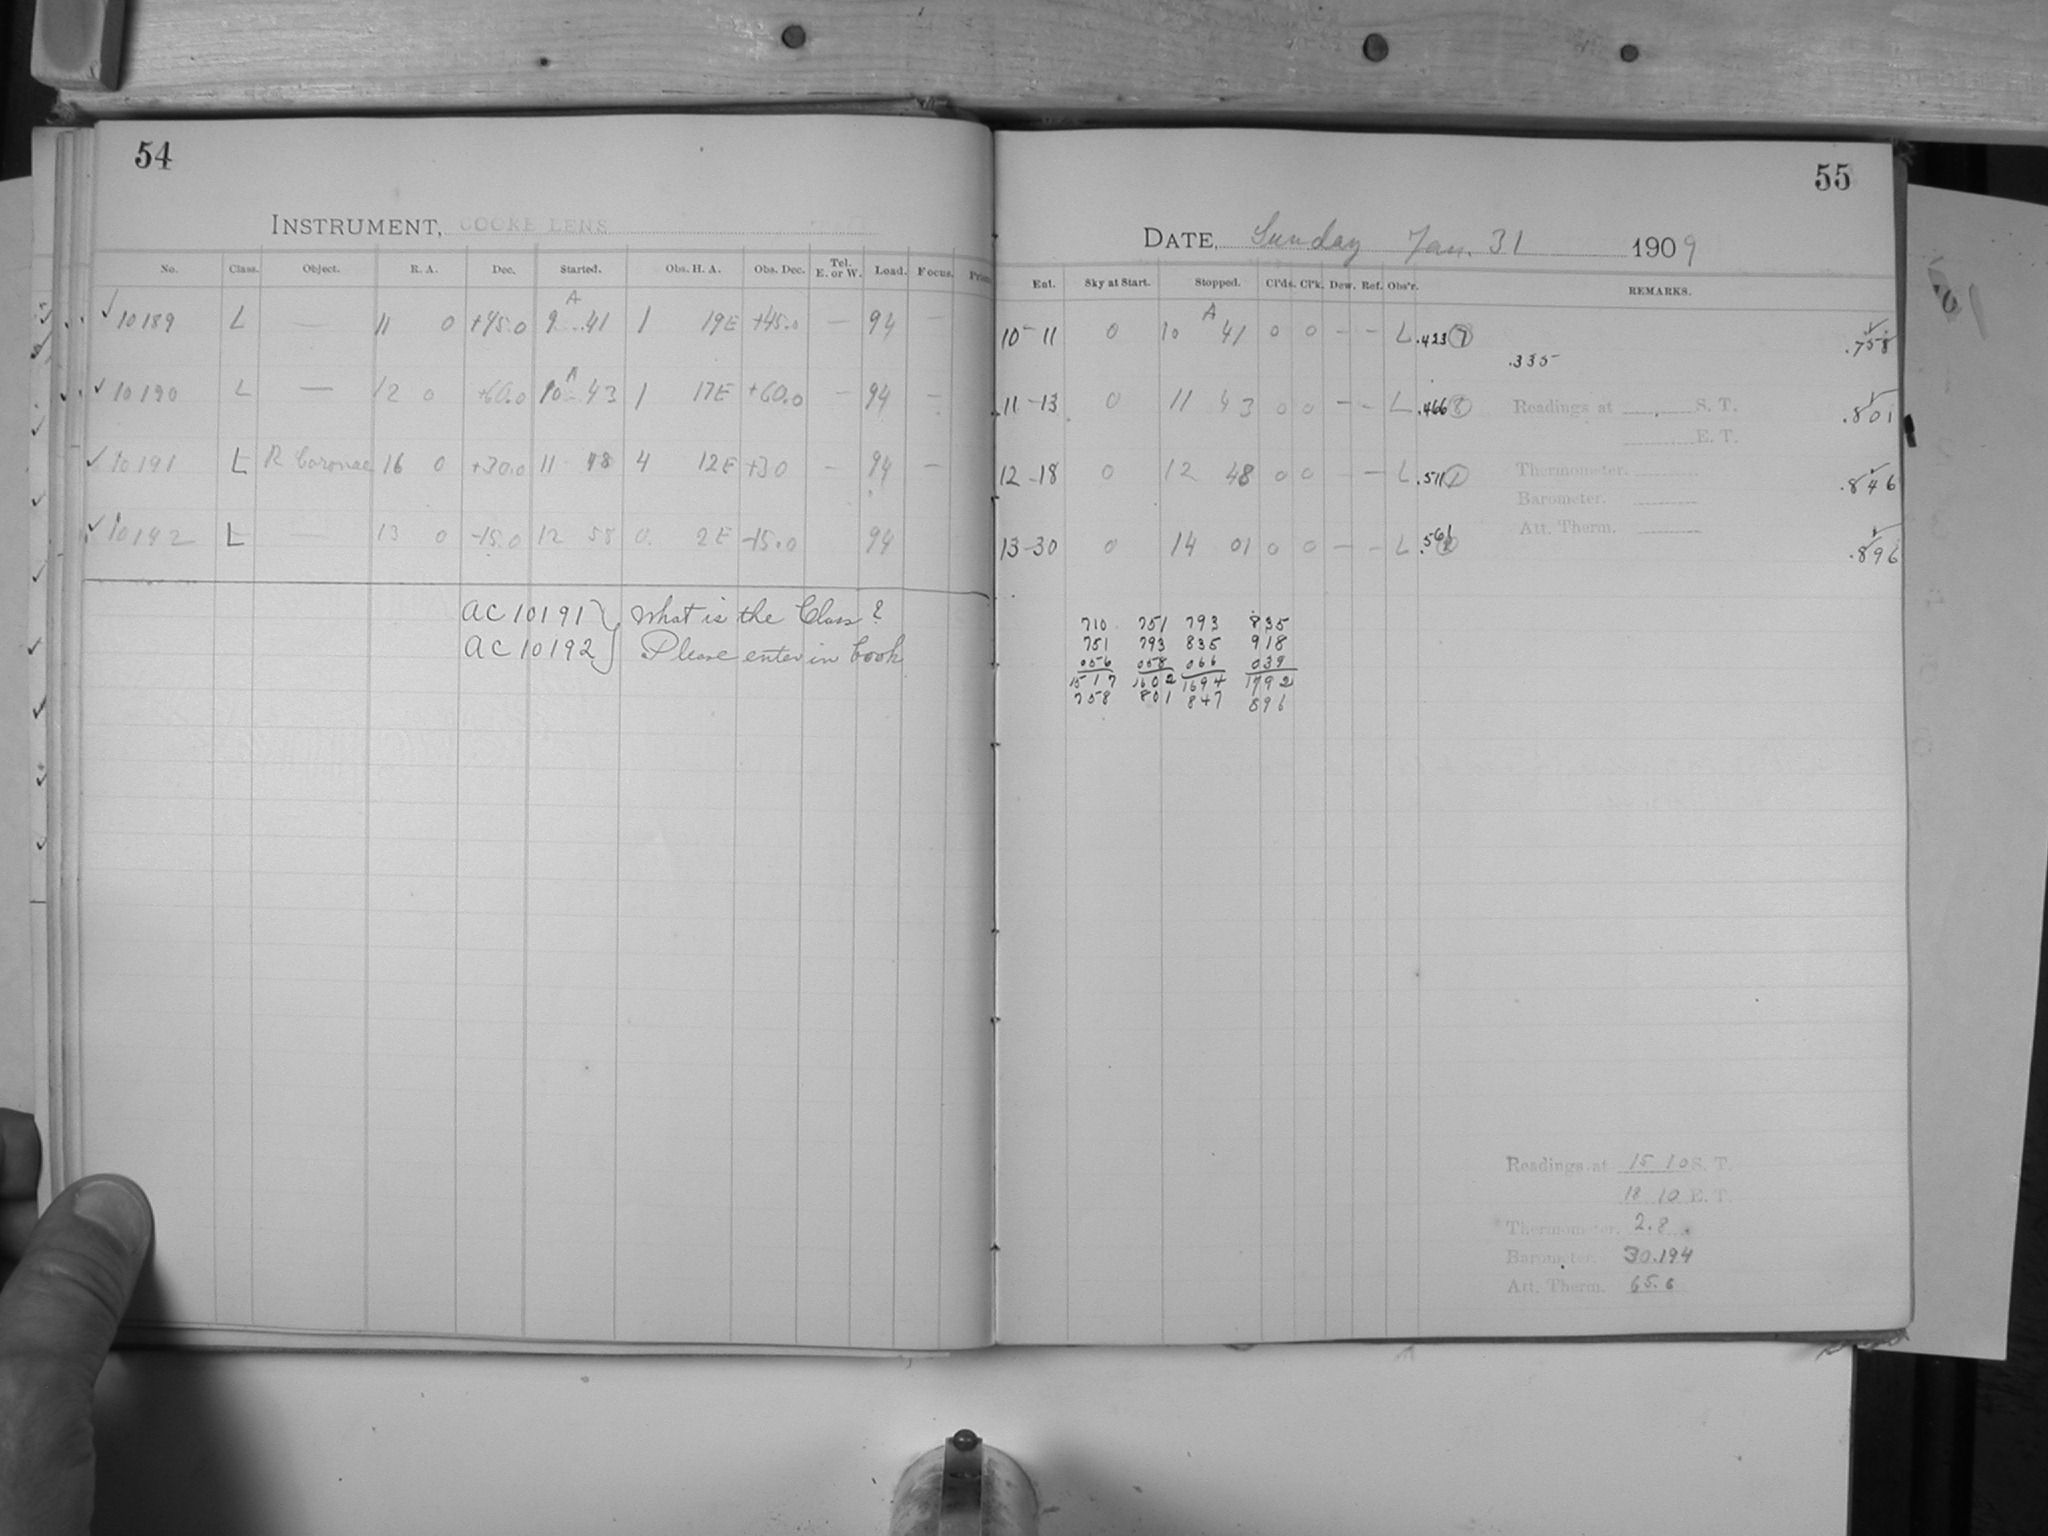 54
INSTRUMENT, COOKE LENS
No. Class. Object. R. A. Dec. Started. Obs. H. A. Obs. Dec. Tel. E. or W. Load. Focus.
✓ 10189 L — 11 0 +45.0 9 A 41 1 19E +45.0 — 94 —
✓ 10190 L — 12 0 +60.0 10 A 43 1 17E +60.0 — 94 —
✓ 10191 L R Coronae 16 0 +30.0 11 48 4 12E +30 — 94 —
✓ 10192 L — 13 0 -15.0 12 58 0 2E -15.0 94
AC 10191 } What is the Class?
AC 10192 } Please enter in book
55
DATE, Sunday Jan. 31 1909
Ent. Sky at Start. Stopped. Cl'ds. Cl'k. Dew. Ref. Obs'r. REMARKS.
10-11 0 10 A 41 0 0 — — L .423 7 .758
.335
11-13 0 11 43 0 0 — — L .466 8 .801
Readings at S. T.
E. T.
12-18 0 12 48 0 0 — — L .511 1 .846
Thermometer.
Barometer.
Att. Therm.
13-30 0 14 01 0 0 — — L .561 2 .896
710 751 793 835
751 793 835 918
056 058 066 039
1517 1602 1694 1792
758 801 847 896
Readings at 15 10 S. T.
18 10 E. T.
Thermometer. 2.8
Barometer. 30.194
Att. Therm. 65.6